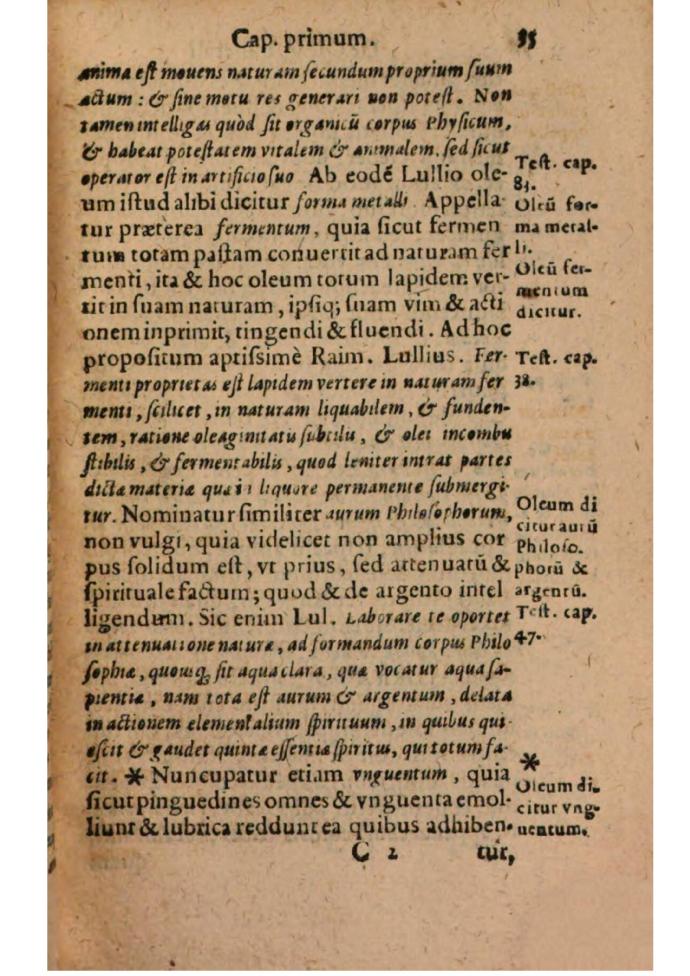 Cap. primum. 35
anima eſt mouens naturam ſecundum proprium ſuum
actum : & ſine motu res generari non poteſt. Non
tamen intelligas quòd ſit organicũ corpus Phyſicum,
& habeat poteſtatem vitalem & animalem, ſed ſicut
operator eſt in artificio ſuo Ab eodẽ Lullio ole-
um iſtud alibi dicitur forma metalli. Appella-
tur præterea fermentum, quia ſicut fermen
tum totam paſtam conuertit ad naturam fer
menti, ita & hoc oleum totum lapidem ver-
tit in ſuam naturam, ipſiq; ſuam vim & acti
onem inprimit, tingendi & fluendi. Ad hoc
propoſitum aptiſsimè Raim. Lullius. Fer-
menti proprietas eſt lapidem vertere in naturam fer
menti, ſcilicet, in naturam liquabilem, & funden-
tem, ratione oleaginitatis ſubtilis, & olei incombu
ſtibilis, & fermentabilis, quod leniter intrat partes
dictæ materiæ quæ in liquore permanente ſubmergi-
tur. Nominatur ſimiliter aurum Philoſophorum,
non vulgi, quia videlicet non amplius cor
pus ſolidum eſt, vt prius, ſed attenuatũ &
ſpirituale factum; quod & de argento intel
ligendum. Sic enim Lul. Laborare te oportet
in attenuatione naturæ, ad formandum corpus Philo
ſophiæ, quouſq; ſit aqua clara, quæ vocatur aqua ſa-
pientiæ, nam tota eſt aurum & argentum, delata
in actionem elementalium ſpirituum, in quibus qui-
eſcit & gaudet quintæ eſſentiæ ſpiritus, qui totum fa-
cit. * Nuncupatur etiam vnguentum, quia
ſicut pinguedines omnes & vnguenta emol-
liunt & lubrica reddunt ea quibus adhiben-
C 2 tur,
Teſt. cap.
83.
Oleũ for-
ma metal-
li.
Oleũ fer-
mentum
dicitur.
Teſt. cap.
38.
Oleum di
citur aurũ
Philoſo.
phorũ &
argentũ.
Teſt. cap.
47.
*
Oleum di-
citur vng-
uentum.